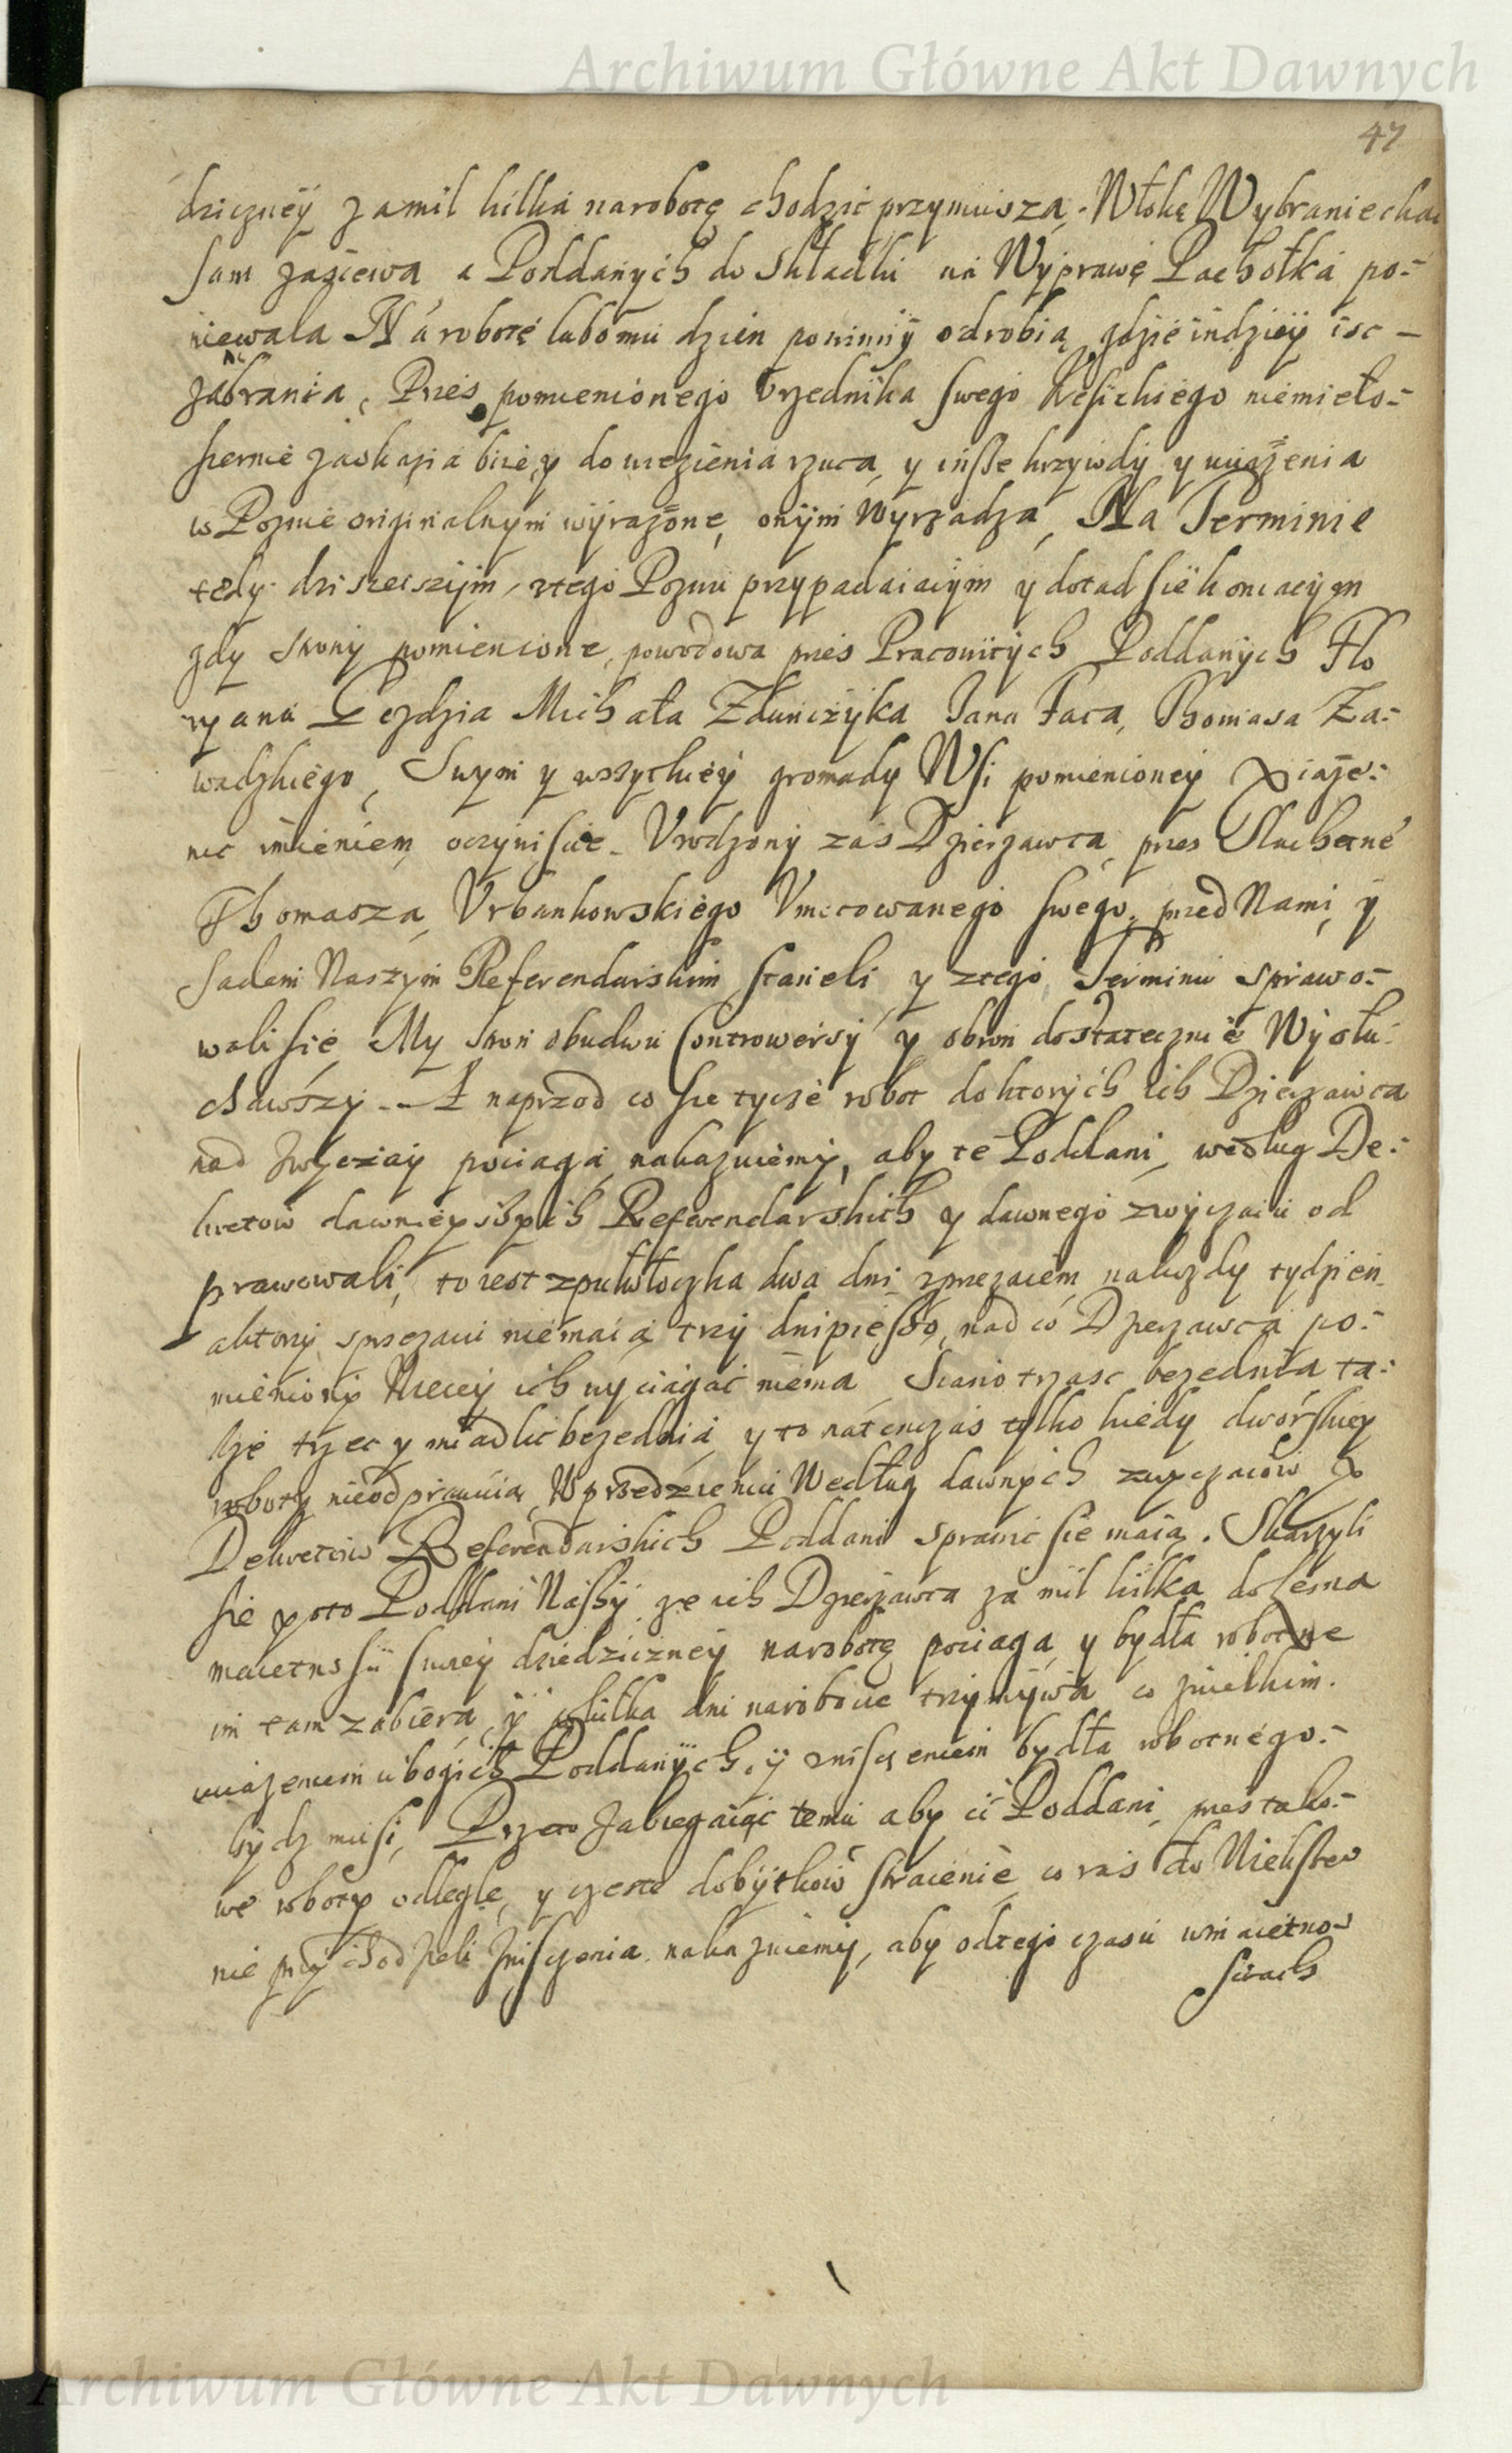 Archiwum Główne Akt Dawnych
47
dziczney za mil kilka na robotę chodzić przymusza. Włokę Wybraniecką
sam zasiewa a Poddanych do składki na Wyprawę Pachołka po-
niewala Na robotę lubo mu dzien powinny odrobią gdzie indziey isc
nie
zabrania, Przes pomienionego Urzednika swego niemiło-
siernie biie, y do więzienia rzuca, y insze krzywdy y uciążenia
w Pozwie originalnym wyrażone, onym Wyrządza, Na Terminie
tedy dzisieiszym, z tego Pozwu przypadaiącym y dotąd się kończącym
gdy strony pomienione, powodowa przes Pracowitych Poddanych Flo
ryana Gozdzia Michała Zdunczyka Jana Faca, Thomasa Za-
wadzkiego, Swym y wszytkiey gromady Wsi pomienioney Xiąże-
nic imieniem oczywiscie. Urodzony zas Dzierzawca, przes Slachetne
Thomasza Urbankowskiego Umocowanego swego, przed Nami, y
Sądem Naszym Referendarskim staneli y z tego Terminu sprawo-
wali się, My stron obudwu Controwersy y obron dostatecznie Wysłu-
chawszy. A naprzod co się tycze robot do ktorych ich Dzierzawca
nad zwyczay pociąga, nakazuiemy, aby te Poddani, według De-
kretow dawnieyszych Referendarskich y dawnego zwyczaiu od
prawowali, to iest z pułwłoczka dwa dni z przęzaiem, na kazdy tydzien
a ktorzy sprzęzaiu nie maią trzy dni pieszo, nad co Dzierzawca po-
mieniony Wiecey ich wyciągać nie ma Siano trząść bez ednia ta-
kze trzec y miądlic bez ednia, y to natenczas tylko kiedy dworskiey
roboty nie odprawuią, W przedzeniu Według dawnych zwyczaiow y
Dekretow Referendarskich Poddani sprawic się maią. Skarzyli
się y oto Poddani Naszy ze ich Dzierzawca za mil kilka do
maiętnossci swoiey dziedziczney na robotę pociąga, y bydła robotne
im tam zabiera, y kilka dni na robocie trzymywa co z wielkim.
uciążeniem ubogich Poddanych, y znisczeniem bydła robotnego.-
bydz musi, Przeto zabiegaiąc temu aby ci Poddani, przes tako-
we roboty odległe, y częste dobytkow stracenie co raz do Wiekszeo
nie przychodzieli zniszczenia nakazuiemy, aby od tego czasu w maiętno-
sciach
Archiwum Główne Akt Dawnych